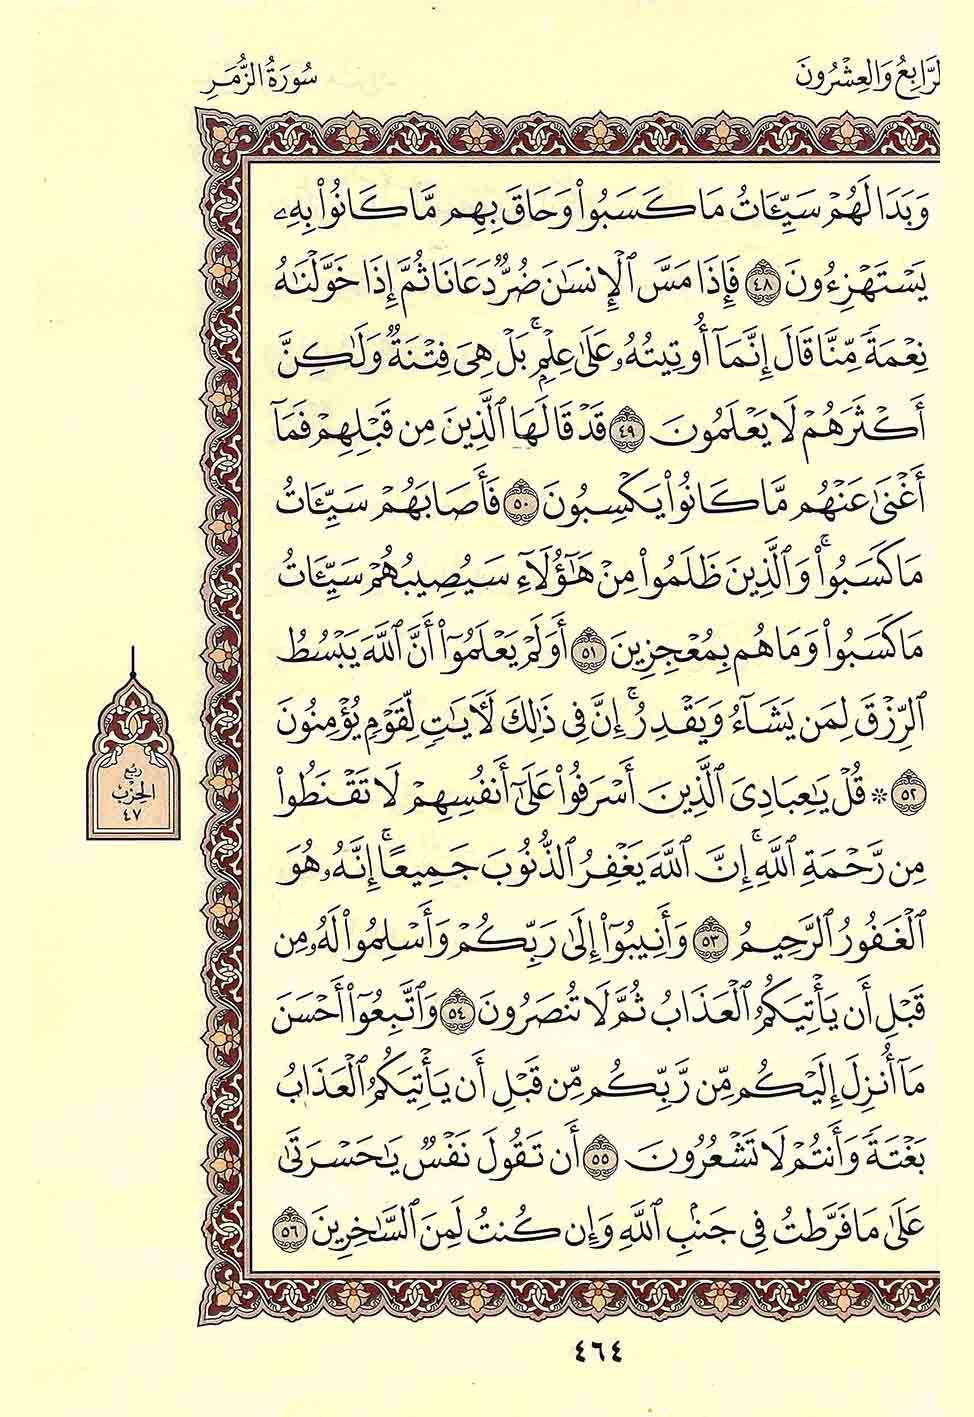 لرَّابِعُ وَالعِشْرُونَ
سُورَةُ الزُّمَرِ
وَبَدَا لَهُمۡ سَيِّـَٔاتُ مَا كَسَبُواْ وَحَاقَ بِهِم مَّا كَانُواْ بِهِۦ
يَسۡتَهۡزِءُونَ ٤٨ فَإِذَا مَسَّ ٱلۡإِنسَٰنَ ضُرّٞ دَعَانَا ثُمَّ إِذَا خَوَّلۡنَٰهُ
نِعۡمَةٗ مِّنَّا قَالَ إِنَّمَآ أُوتِيتُهُۥ عَلَىٰ عِلۡمِۭۚ بَلۡ هِيَ فِتۡنَةٞ وَلَٰكِنَّ
أَكۡثَرَهُمۡ لَا يَعۡلَمُونَ ٤٩ قَدۡ قَالَهَا ٱلَّذِينَ مِن قَبۡلِهِمۡ فَمَآ
أَغۡنَىٰ عَنۡهُم مَّا كَانُواْ يَكۡسِبُونَ ٥٠ فَأَصَابَهُمۡ سَيِّـَٔاتُ
مَا كَسَبُواْۚ وَٱلَّذِينَ ظَلَمُواْ مِنۡ هَٰٓؤُلَآءِ سَيُصِيبُهُمۡ سَيِّـَٔاتُ
مَا كَسَبُواْ وَمَا هُم بِمُعۡجِزِينَ ٥١ أَوَلَمۡ يَعۡلَمُوٓاْ أَنَّ ٱللَّهَ يَبۡسُطُ
ٱلرِّزۡقَ لِمَن يَشَآءُ وَيَقۡدِرُۚ إِنَّ فِي ذَٰلِكَ لَأٓيَٰتٖ لِّقَوۡمٖ يُؤۡمِنُونَ
٥٢ * قُلۡ يَٰعِبَادِيَ ٱلَّذِينَ أَسۡرَفُواْ عَلَىٰٓ أَنفُسِهِمۡ لَا تَقۡنَطُواْ
مِن رَّحۡمَةِ ٱللَّهِۚ إِنَّ ٱللَّهَ يَغۡفِرُ ٱلذُّنُوبَ جَمِيعًاۚ إِنَّهُۥ هُوَ
ٱلۡغَفُورُ ٱلرَّحِيمُ ٥٣ وَأَنِيبُوٓاْ إِلَىٰ رَبِّكُمۡ وَأَسۡلِمُواْ لَهُۥ مِن
قَبۡلِ أَن يَأۡتِيَكُمُ ٱلۡعَذَابُ ثُمَّ لَا تُنصَرُونَ ٥٤ وَٱتَّبِعُوٓاْ أَحۡسَنَ
مَآ أُنزِلَ إِلَيۡكُم مِّن رَّبِّكُم مِّن قَبۡلِ أَن يَأۡتِيَكُمُ ٱلۡعَذَابُ
بَغۡتَةٗ وَأَنتُمۡ لَا تَشۡعُرُونَ ٥٥ أَن تَقُولَ نَفۡسٞ يَٰحَسۡرَتَىٰ
عَلَىٰ مَا فَرَّطتُ فِي جَنۢبِ ٱللَّهِ وَإِن كُنتُ لَمِنَ ٱلسَّٰخِرِينَ ٥٦
رُبْعُ
الحِزْب
٤٧
٤٦٤